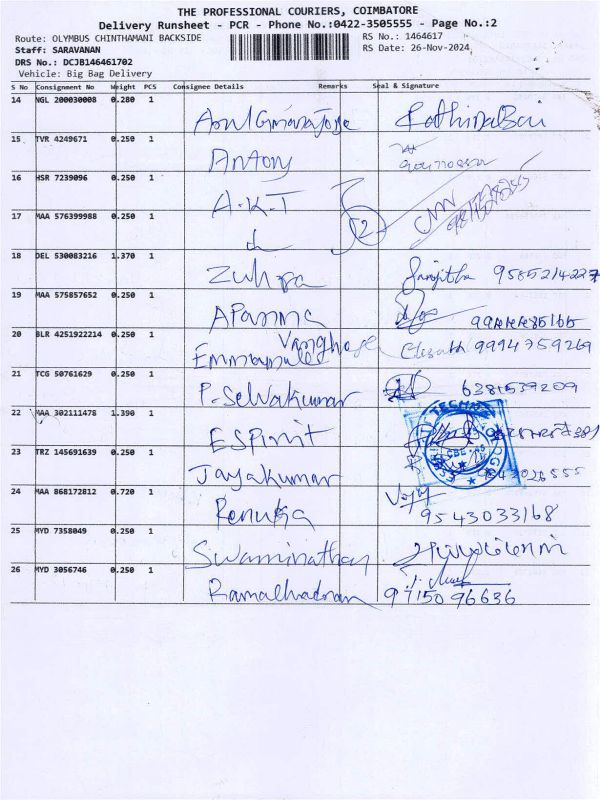 THE PROFESSIONAL COURIERS, COIMBATORE
Delivery Runsheet - PCR - Phone No.:0422-3505555 - Page No.:2
Route: OLYMBUS CHINTHAMANI BACKSIDE
RS No.: 1464617
Staff: SARAVANAN
RS Date: 26-Nov-2024
DRS No.: DCJB146461702
Vehicle: Big Bag Delivery
S No Consignment No Weight PCS Consignee Details Remarks Seal & Signature
14 NGL 200030008 0.280 1
15 TVR 4249671 0.250 1 Antony
16 HSR 7239096 0.250 1 A.K.T
17 MAA 576399988 0.250 1 2
18 DEL 530083216 1.370 1 Zuhra 9585214227
19 MAA 575857652 0.250 1
20 BLR 4251922214 0.250 1 9994759269
21 TCG 50761629 0.250 1 P. Selvakumar 6281539209
22 MAA 302111478 1.390 1 ESPirit
23 TRZ 145691639 0.250 1 Jayakumar
24 MAA 868172812 0.720 1 Renuka 9543033168
25 MYD 7358049 0.250 1 Swaminathan
26 MYD 3056746 0.250 1 9715096636